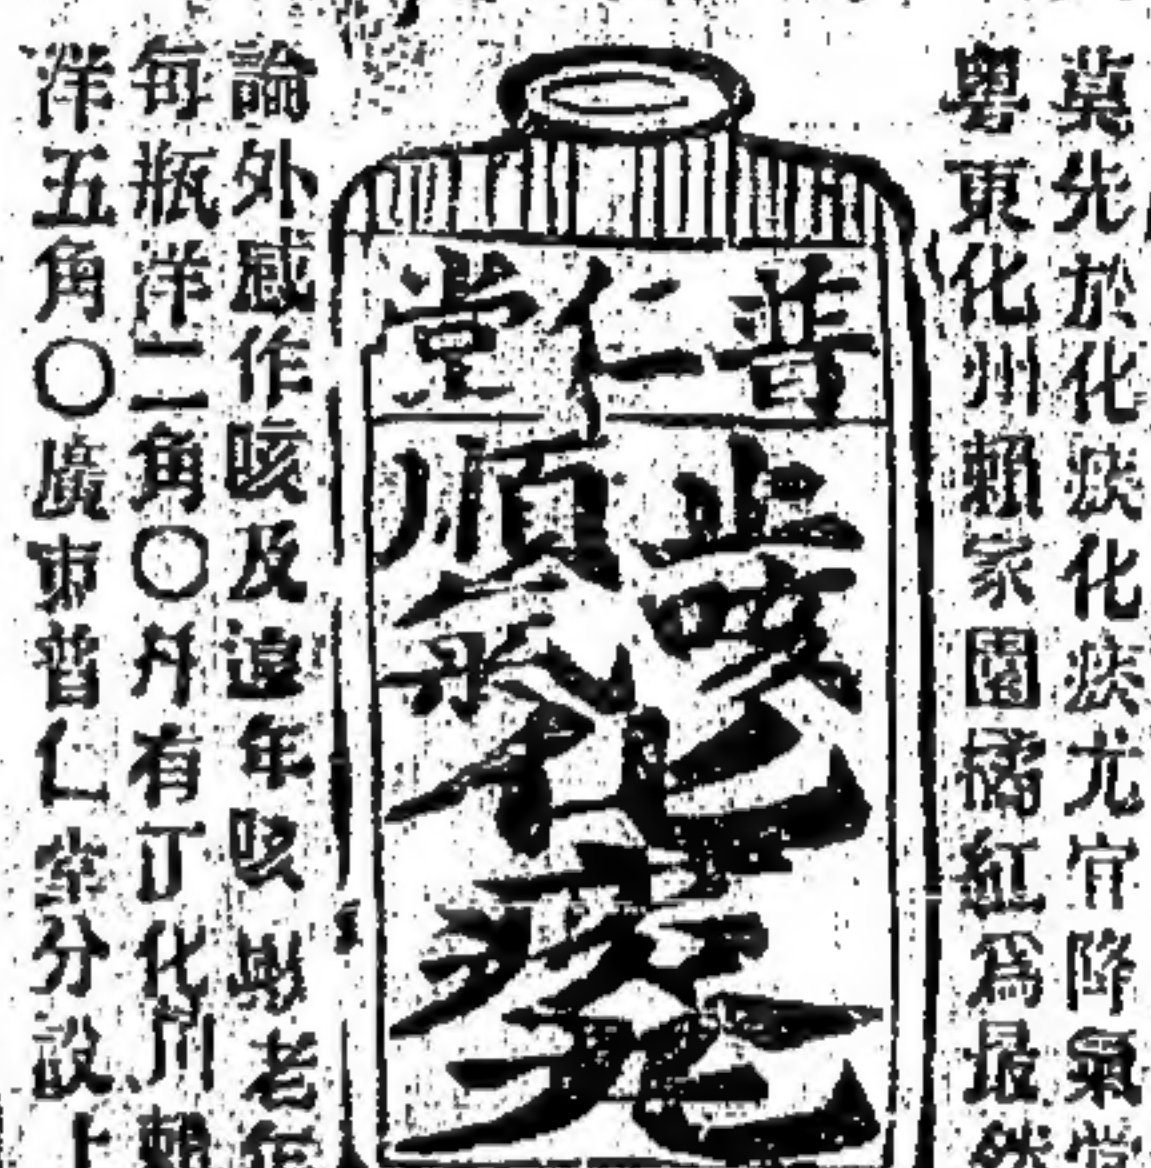 莫先於化痰化痰尤宜降氣
粤東化州賴家園橘紅爲最然
普仁堂
止咳
順氣
化痰
論外感作咳及遠年咳嗽老年
每瓶洋二角〇另有丁化州賴
洋五角〇廣東普仁堂分設上